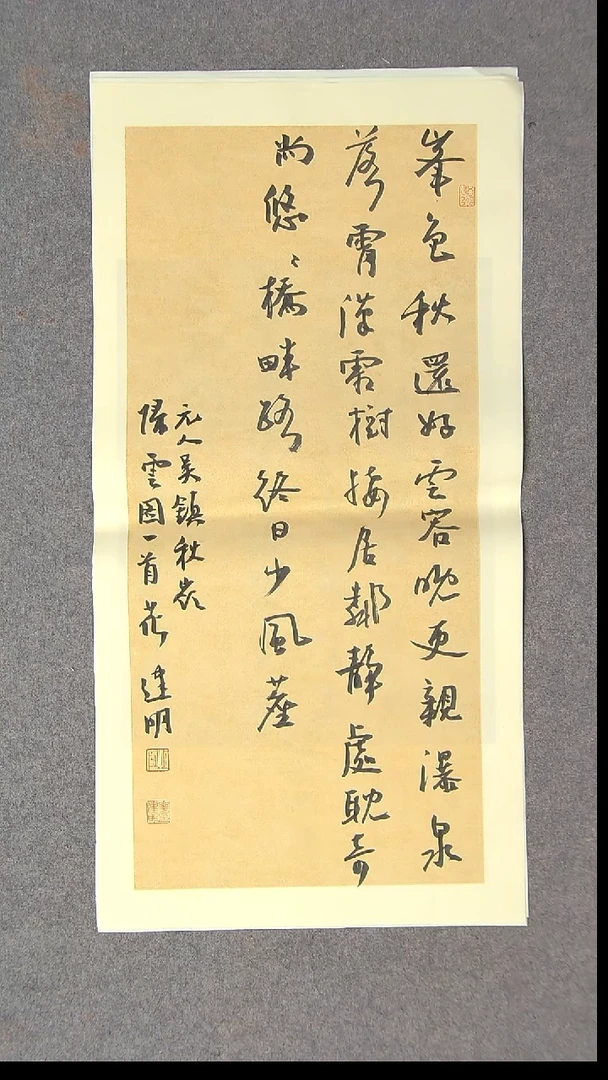 峯色秋還好雲容晚更親瀑泉
落霄漢霜樹接居鄰靜處耽奇
尚悠々橋畔路終日少風塵
元人吳鎮秋嶺
歸雲圖一首 明